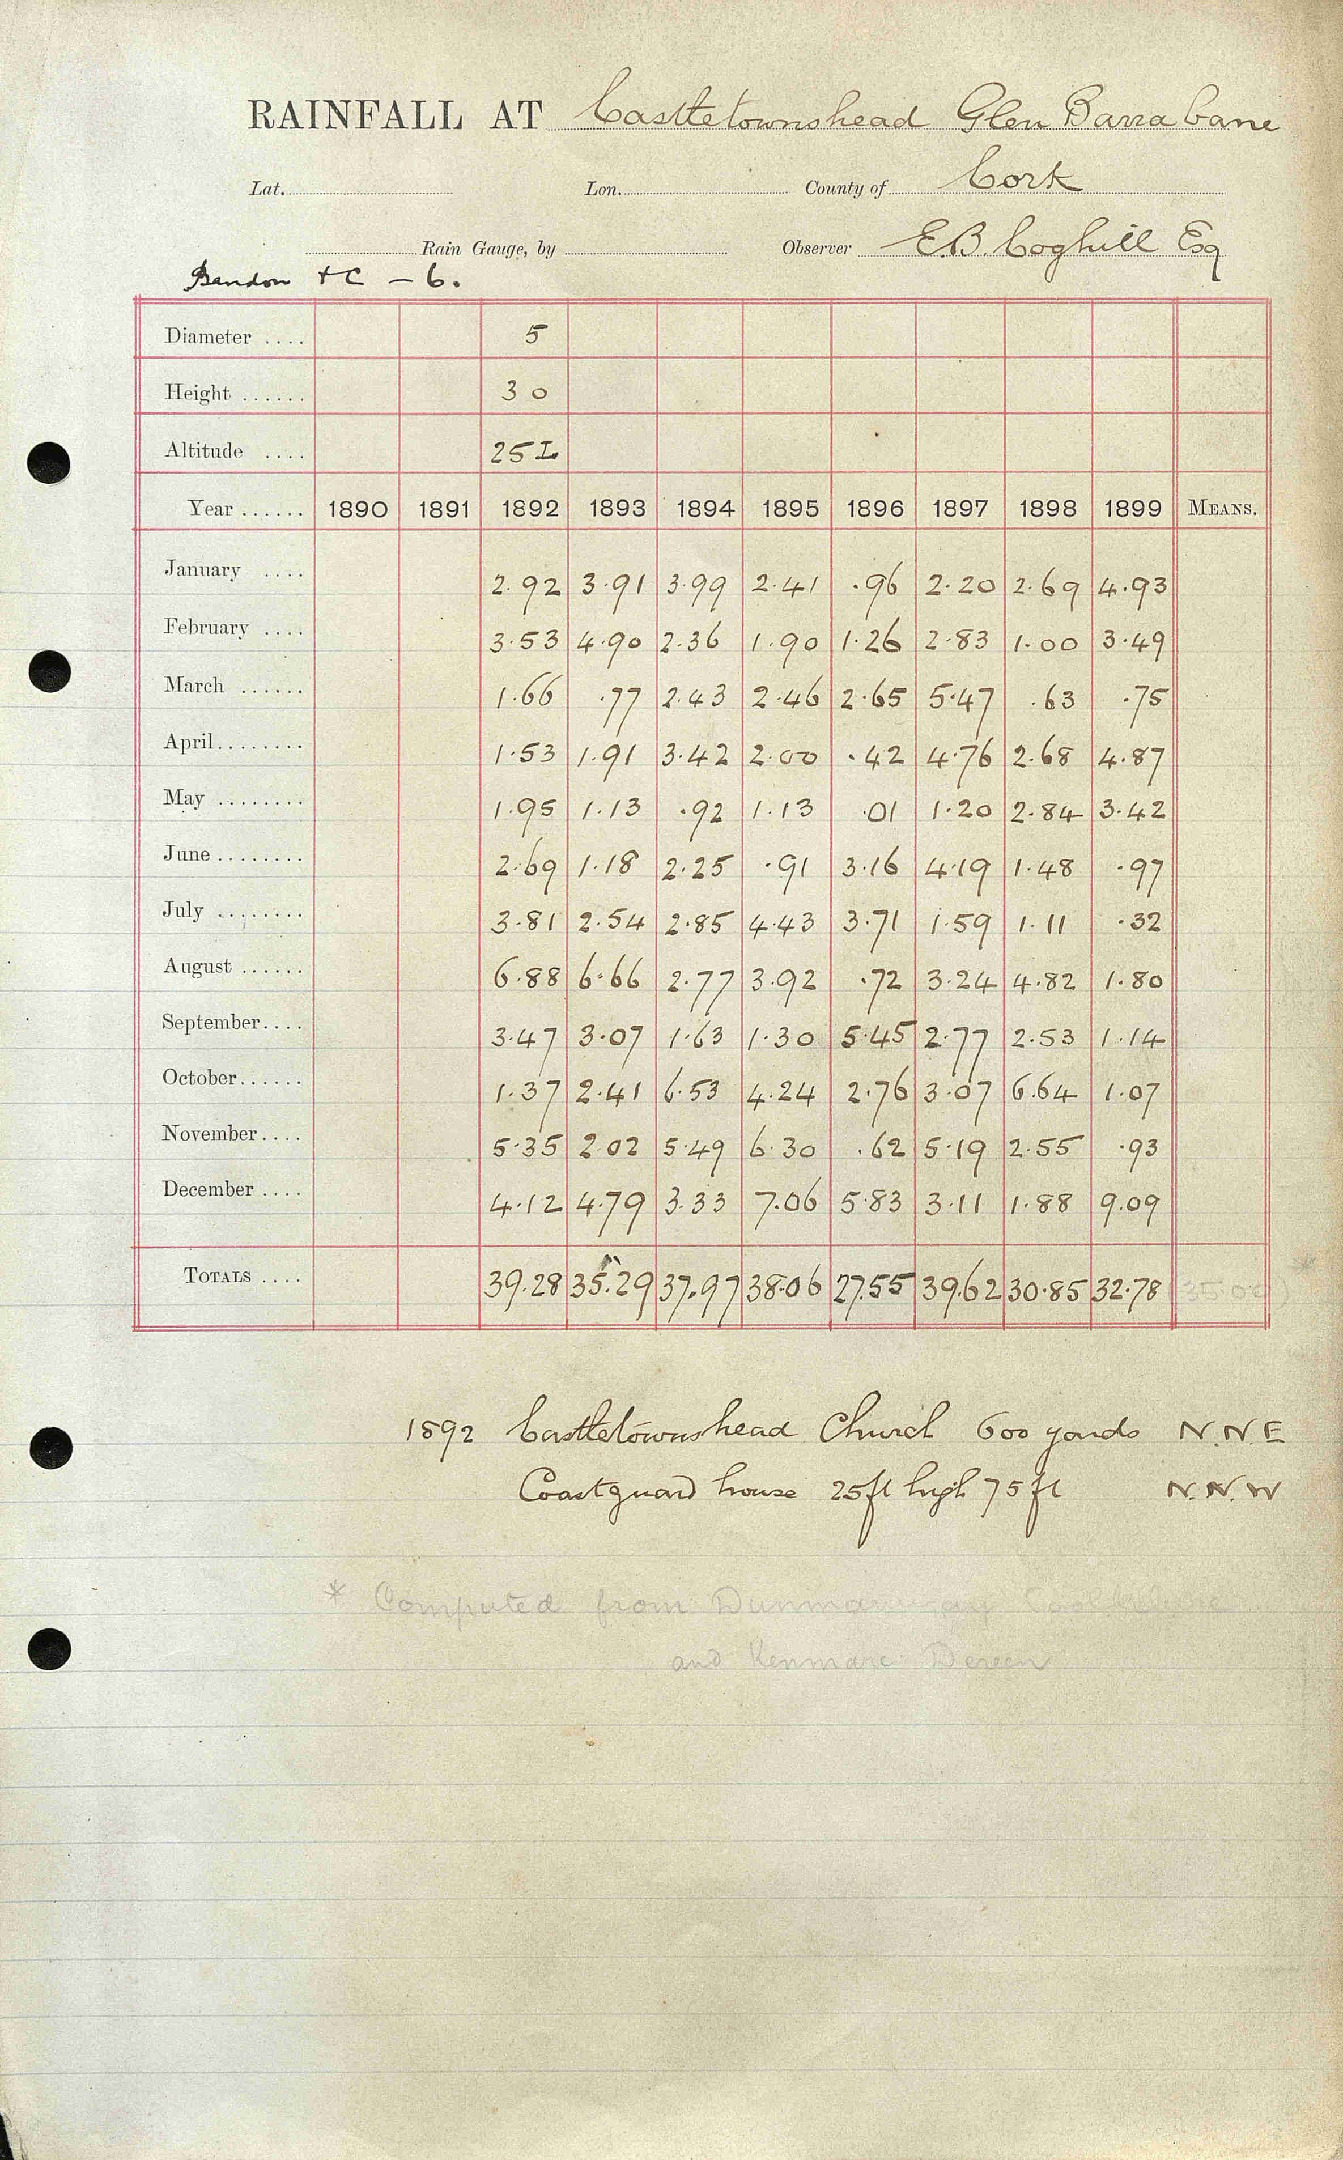 RAINFALL AT Castletownshead Glen Barrabane
Lat. Lon. County of Cork
Rain Gauge, by Observer E.B. Coghill Esq
Bandon + C - 6.
Diameter .... 5
Height ...... 3 0
Altitude .... 25 L
Year ...... 1890 1891 1892 1893 1894 1895 1896 1897 1898 1899 MEANS.
January .... 2.92 3.91 3.99 2.41 .96 2.20 2.69 4.93
February .... 3.53 4.90 2.36 1.90 1.26 2.83 1.00 3.49
March ...... 1.66 .77 2.43 2.46 2.65 5.47 .63 .75
April ........ 1.53 1.91 3.42 2.00 .42 4.76 2.68 4.87
May ........ 1.95 1.13 .92 1.13 .01 1.20 2.84 3.42
June ........ 2.69 1.18 2.25 .91 3.16 4.19 1.48 .97
July ........ 3.81 2.54 2.85 4.43 3.71 1.59 1.11 .32
August ...... 6.88 6.66 2.77 3.92 .72 3.24 4.82 1.80
September .... 3.47 3.07 1.63 1.30 5.45 2.77 2.53 1.14
October ...... 1.37 2.41 6.53 4.24 2.76 3.07 6.64 1.07
November .... 5.35 2.02 5.49 6.30 .62 5.19 2.55 .93
December .... 4.12 4.79 3.33 7.06 5.83 3.11 1.88 9.09
TOTALS .... 39.28 35.29 37.97 38.06 27.55 39.62 30.85 32.78 *
1892 Castletownshead Church 600 yards N.N.E
Coastguard house 25ft high 75ft N.N.W
* Computed from Dunmanway
and Kenmare Dereen